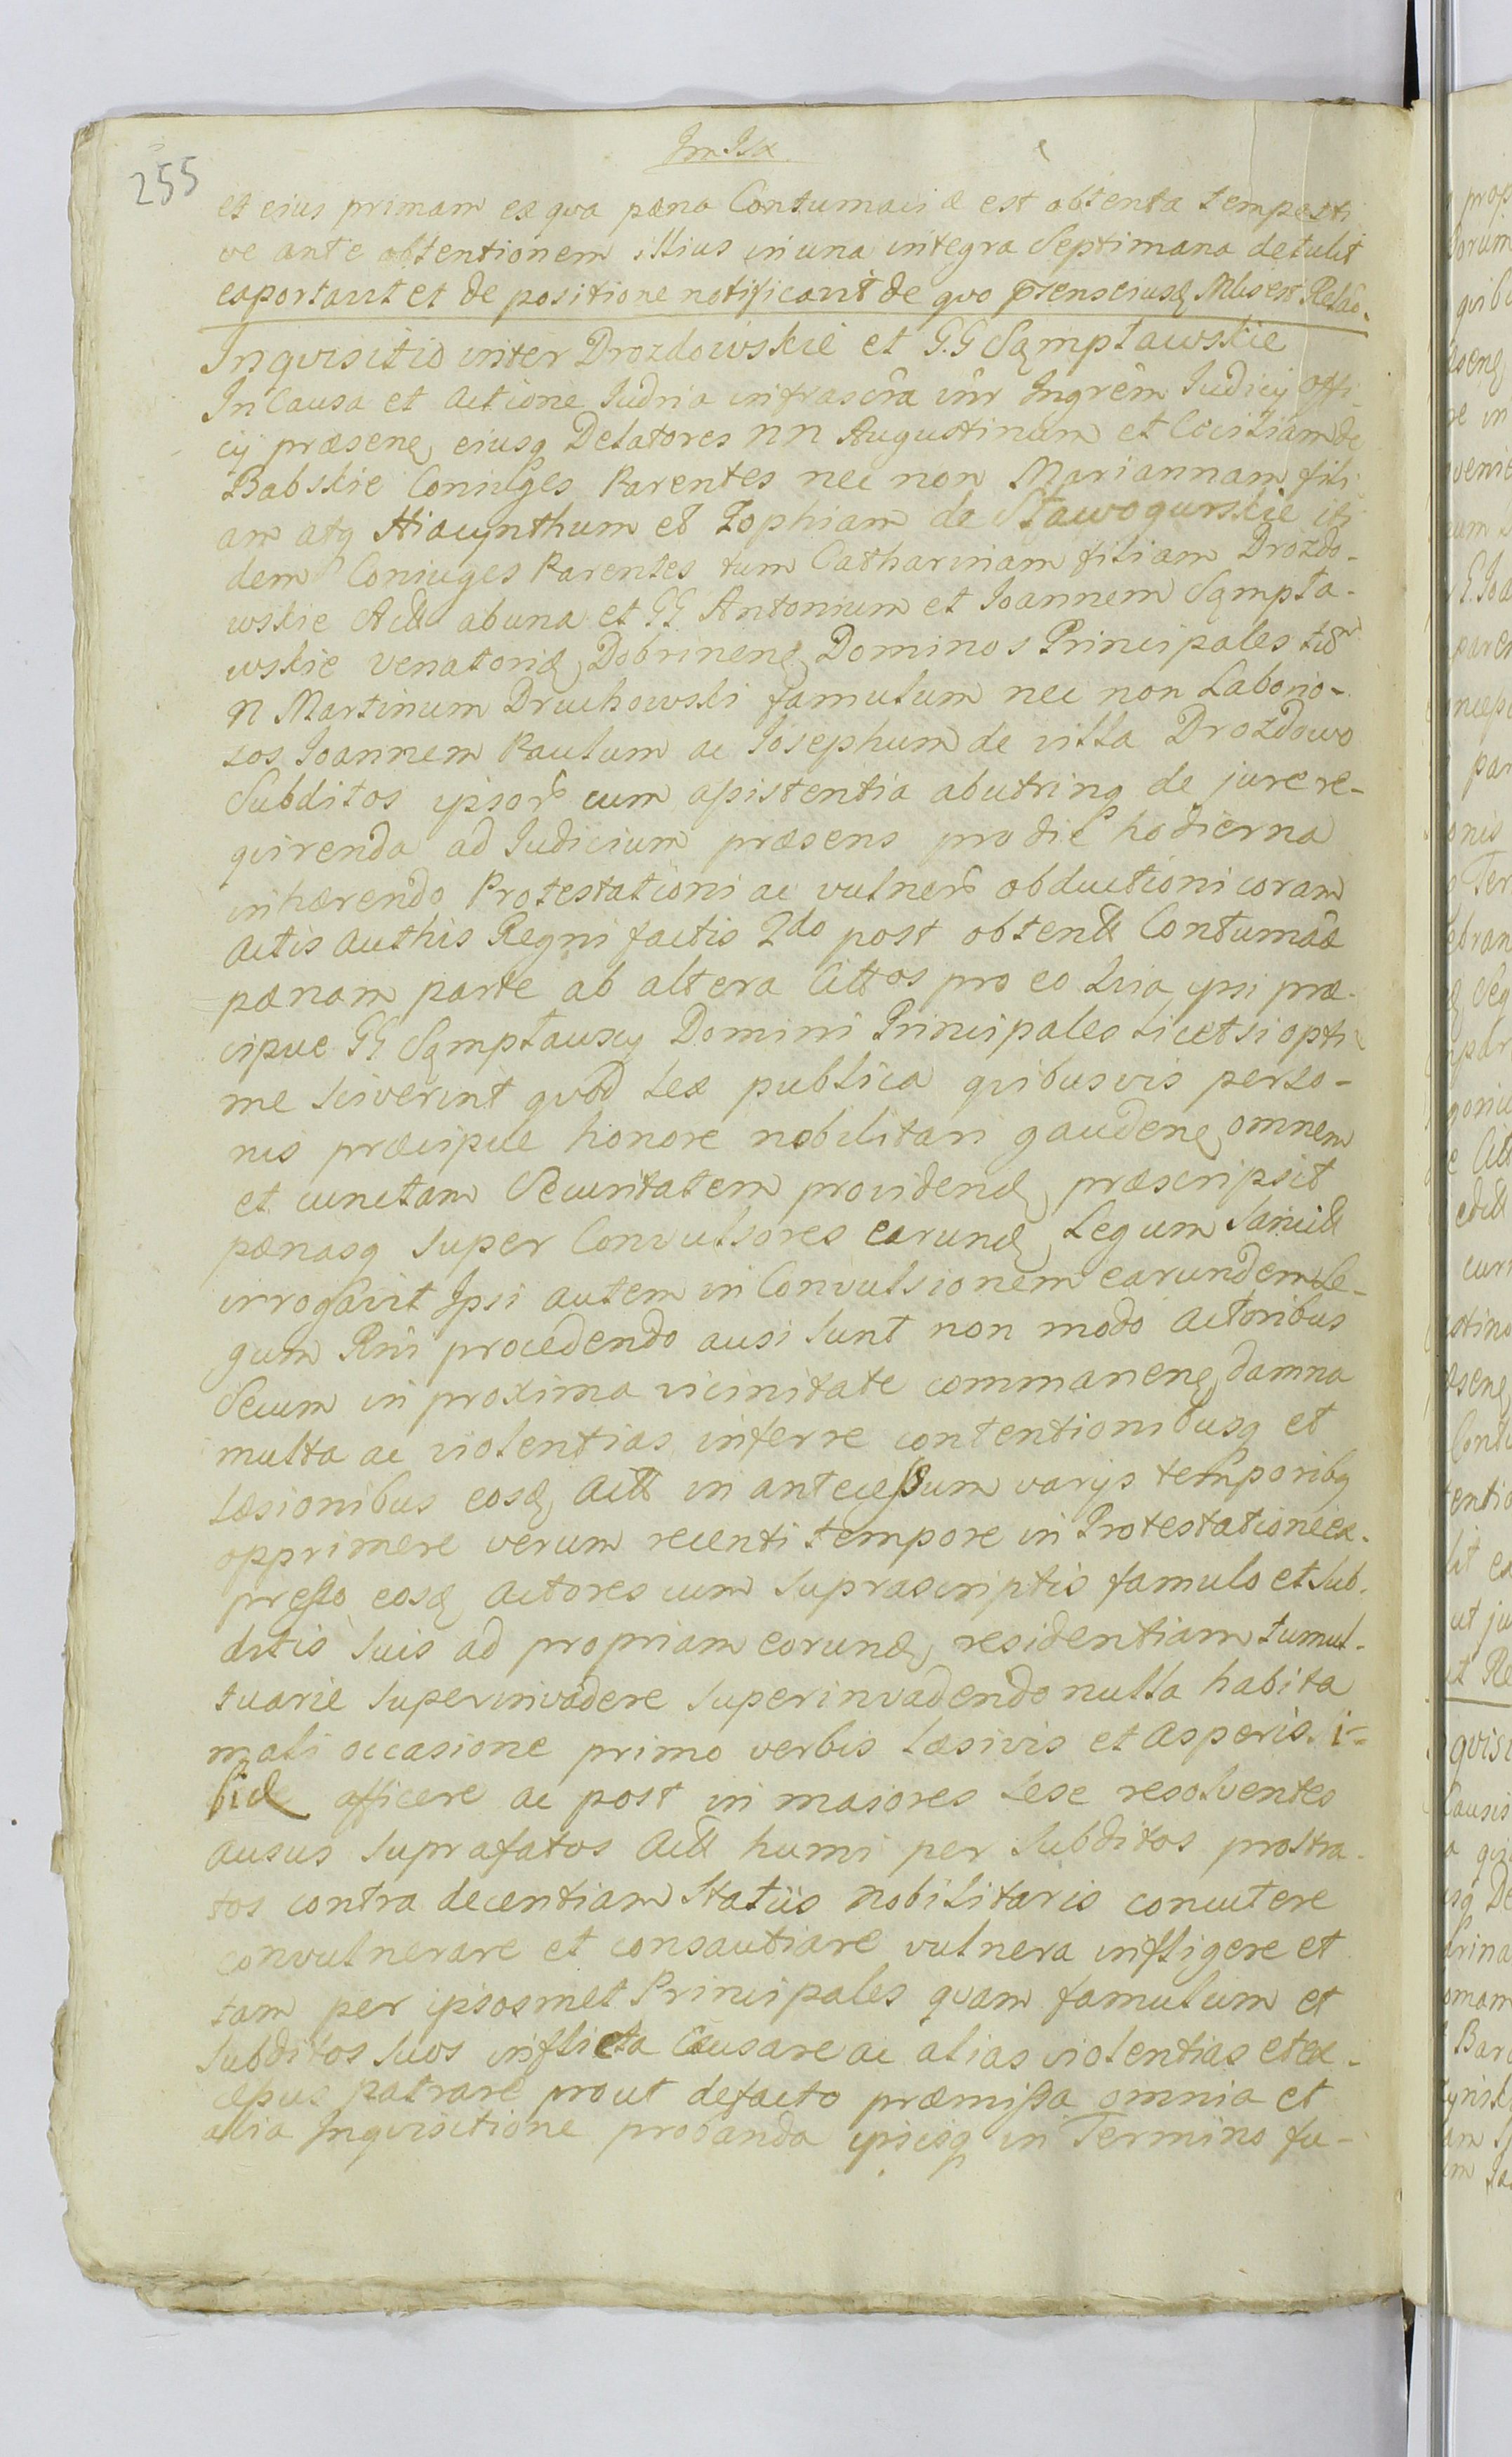 255
et eius primam ex qva pæna Contumaciæ est obtenta tempesti
ve ante obtentionem illius in una integra Septimana detulit
exportavit et de positione notificavit de qvo
Inqvisitio inter Drozdowskie et G.G Sąmpławskie
In Causa et Actione Iudria infrascrã inr Ingrem Iudicÿ Offi-
cÿ præsenę eiusq Delatores nn Augustinum et Cæciliam de
Babskie Coniuges Parentes nec non Mariannam fili
am atq Hiacynthum et Zophiam de Stawogurskie iti
dem Coniuges Parentes tum Catharinam filiam Drozdo-
wskie Actt ab una et GG Antonium et Joannem Sąmpła-
wskie venatorię Dobrinenę Dominos Principales
N Martinum Druchowski famulum nec non Laborio-
sos Joannem Paulum ac Josephum de villa Drozdowo
Subditos ipsor cum assistentia ab utrinq de jure re-
qvirenda ad Iudicium præsens pro die hodierna
inhærendo Protestationi ac vulner obductioni coram
Actis Authis Regni factis 2do post obtentt Contumaæ
pænam parte ab altera Cittos pro eo qvia ipsi præ-
cipue GG Sąmpławscÿ Domini Principales licet si opti
me sciverint qvod Lex publica qvibusvis perso-
nis præcipue honore nobilitari gaudenę omnem
et cunctam Securitatem providenę præscripsit
pænasq super Convulsores earunę Legum Sancitt
irrogavit Ipsi autem in Convulsionem earundem Le-
gum Rni procedendo ausi sunt non modo Actoribus
Secum in proxima vicinitate commanenę damna
multa ac violentias inferre contentionibusq et
læsionibus eosę Actt in antecessum varijs temporibq
opprimere verum recenti tempore in Protestatione ex-
presso eosę Actores cum suprascriptis famulo et sub-
ditis suis ad propriam eorunę residentiam tumul-
tuarie superinvadere superinvadendo nulla habita
mali occasione primo verbis læsivis et asperis
afficere ac post in maiores sese resolventes
ausus suprafatos Actt humi per Subditos prostra-
tos contra decentiam Statús Nobilitaris concutere
convulnerare et consautiare vulnera infligere et
tam per ipsosmet Principales qvam famulum et
subditos suos inflicta Causare ac alias violentias et ex-
cessus patrare prout defacto præmissa omnia et
alia Inqvisitione probanda ipsisq in Termino fu-